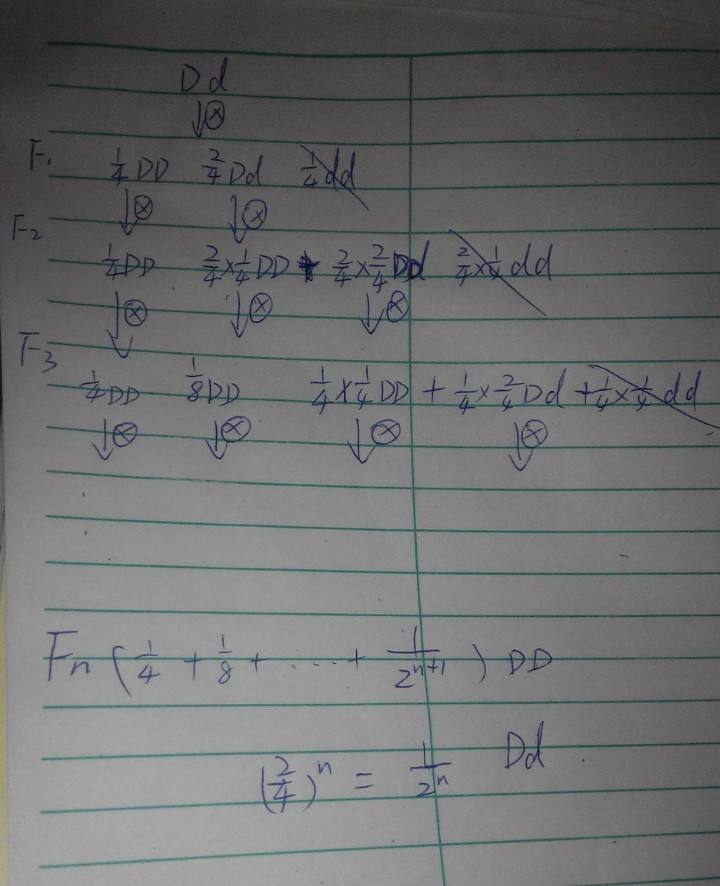 Dd
↓⊗
F₁ 1/4 DD 2/4 Dd 1/4 dd
↓⊗ ↓⊗
F₂ 1/4 DD 2/4×1/4 DD 2/4×2/4 Dd 2/4×1/4 dd
↓⊗ ↓⊗ ↓⊗
F₃ 1/4 DD 1/8 DD 1/4×1/4 DD + 1/4×2/4 Dd + 1/4×1/4 dd
↓⊗ ↓⊗ ↓⊗ ↓⊗
Fn (1/4 + 1/8 + ...... + 1/2ⁿ⁺¹) DD
(2/4)ⁿ = 1/2ⁿ Dd